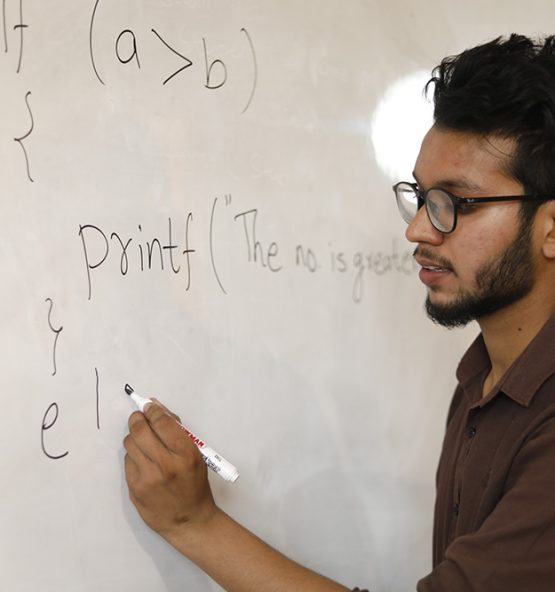 if (a>b)
{
printf("The no. is greate
}
el